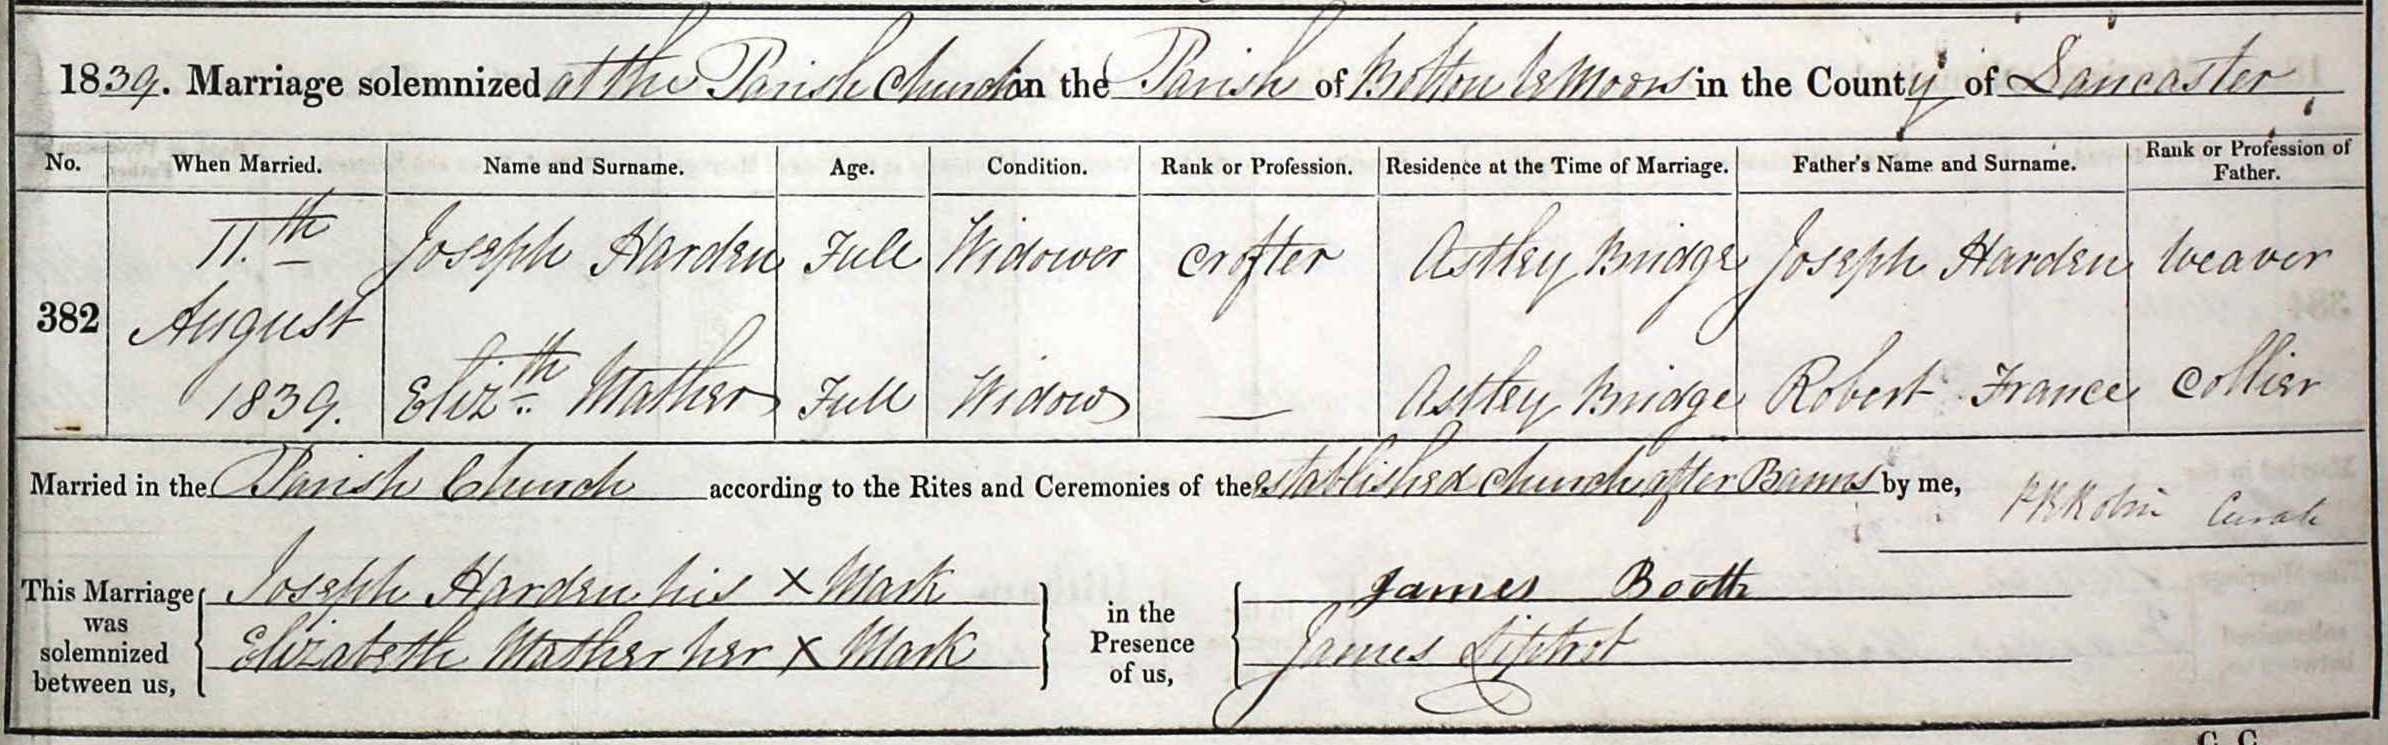 1839. Marriage solemnized at the Parish Church in the Parish of Bolton le Moors in the County of Lancaster
No. When Married. Name and Surname. Age. Condition. Rank or Profession. Residence at the Time of Marriage. Father's Name and Surname. Rank or Profession of Father.
382 11.th August 1839. Joseph Harden Full Widower Crofter Astley Bridge Joseph Harden Weaver
Eliz.th Mather Full Widow — Astley Bridge Robert France Collier
Married in the Parish Church according to the Rites and Ceremonies of the established Church after Banns by me, Curate
This Marriage was solemnized between us, Joseph Harden his X Mark in the Presence of us, James Booth
Elizabeth Mather her X Mark James Liptrot